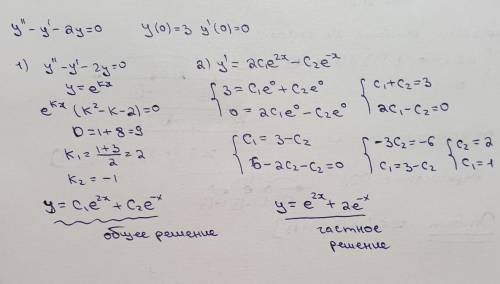 y'' - y' - 2y = 0    y(0) = 3  y'(0) = 0
1) y'' - y' - 2y = 0
y = e^{kx}
e^{kx} (k² - k - 2) = 0
D = 1 + 8 = 9
k₁ = \frac{1+3}{2} = 2
k₂ = -1
y = c₁e^{2x} + c₂e^{-x}
общее решение
2) y' = 2c₁e^{2x} - c₂e^{-x}
{ 3 = c₁e⁰ + c₂e⁰    { c₁ + c₂ = 3
0 = 2c₁e⁰ - c₂e⁰    2c₁ - c₂ = 0
{ c₁ = 3 - c₂    { -3c₂ = -6    { c₂ = 2
6 - 2c₂ - c₂ = 0    c₁ = 3 - c₂    c₁ = 1
y = e^{2x} + 2e^{-x}
частное
решение